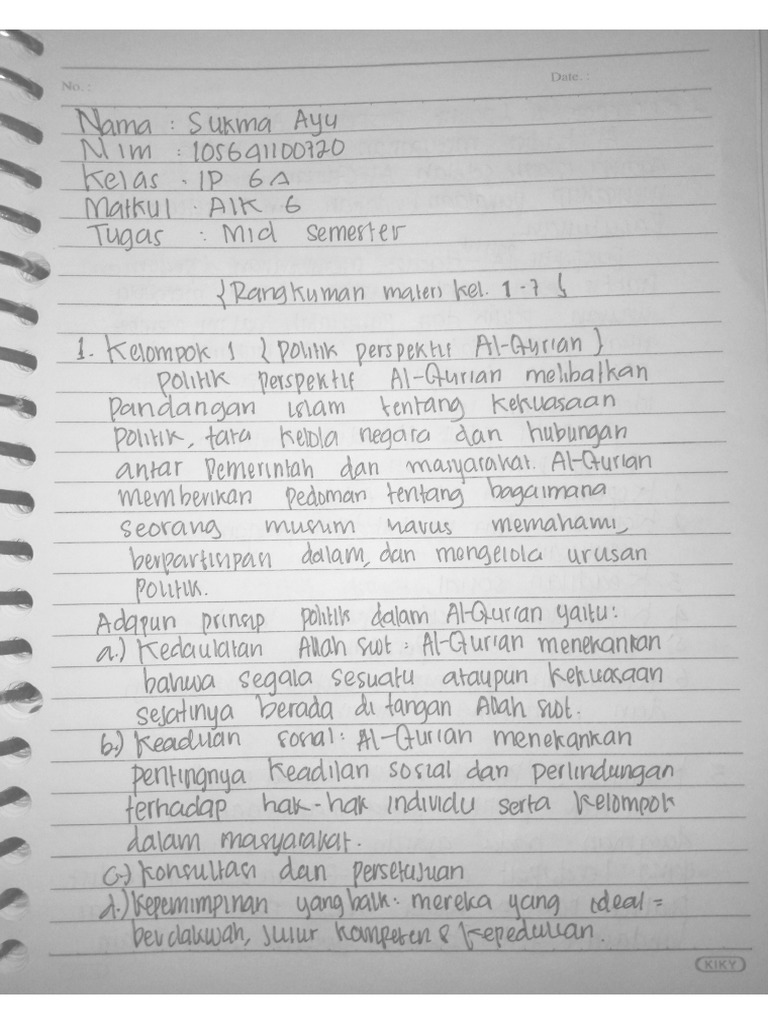 No. :
Date. :
Nama : Sukma Ayu
Nim : 105641100720
Kelas . IP 6A
Matkul . AIK 6
Tugas : Mid semester
{Rangkuman materi kel. 1-7}
1. Kelompok 1 { politik perspektif Al-Qur'an }
politik perspektif Al-Qur'an melibatkan
pandangan islam tentang kekuasaan
politik, tata kelola negara dan hubungan
antar pemerintah dan masyarakat. Al-Qur'an
memberikan pedoman tentang bagaimana
seorang muslim harus memahami,
berpartisipan dalam, dan mengelola urusan
politik.
Adapun prinsip politik dalam Al-Qur'an yaitu:
a.) Kedaulatan Allah swt : Al-Qur'an menekankan
bahwa segala sesuatu ataupun kekuasaan
sejatinya berada di tangan Allah swt.
b.) Keadilan sosial : Al-Qur'an menekankan
pentingnya keadilan sosial dan perlindungan
terhadap hak-hak individu serta kelompok
dalam masyarakat.
c.) Konsultasi dan persetujuan
d.) Kepemimpinan yang baik : mereka yang ideal =
berdakwah, jujur kompeten & kepedulian.
KIKY